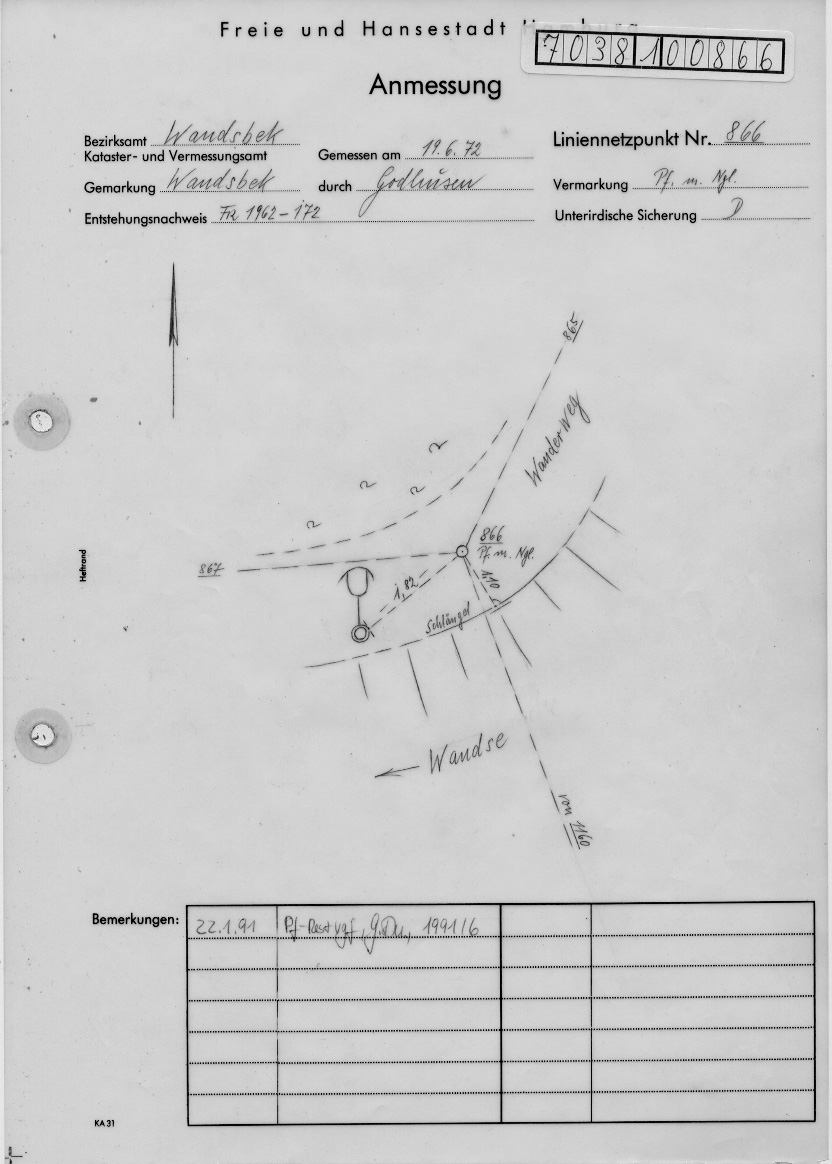 Freie und Hansestadt
7038100866
Anmessung
Bezirksamt Wandsbek
Kataster- und Vermessungsamt
Gemessen am 19.6.72
Liniennetzpunkt Nr. 866
Gemarkung Wandsbek
durch Godhusen
Vermarkung Pf. m. Ngl.
Entstehungsnachweis 1962-172
Unterirdische Sicherung D
865
Wanderweg
866
Pf. m. Ngl.
867
1,82
1,10
Schlängel
Wandse
von 1160
Heftrand
Bemerkungen:
22.1.91 Pf-Rest vgf, 1991/6
KA 31